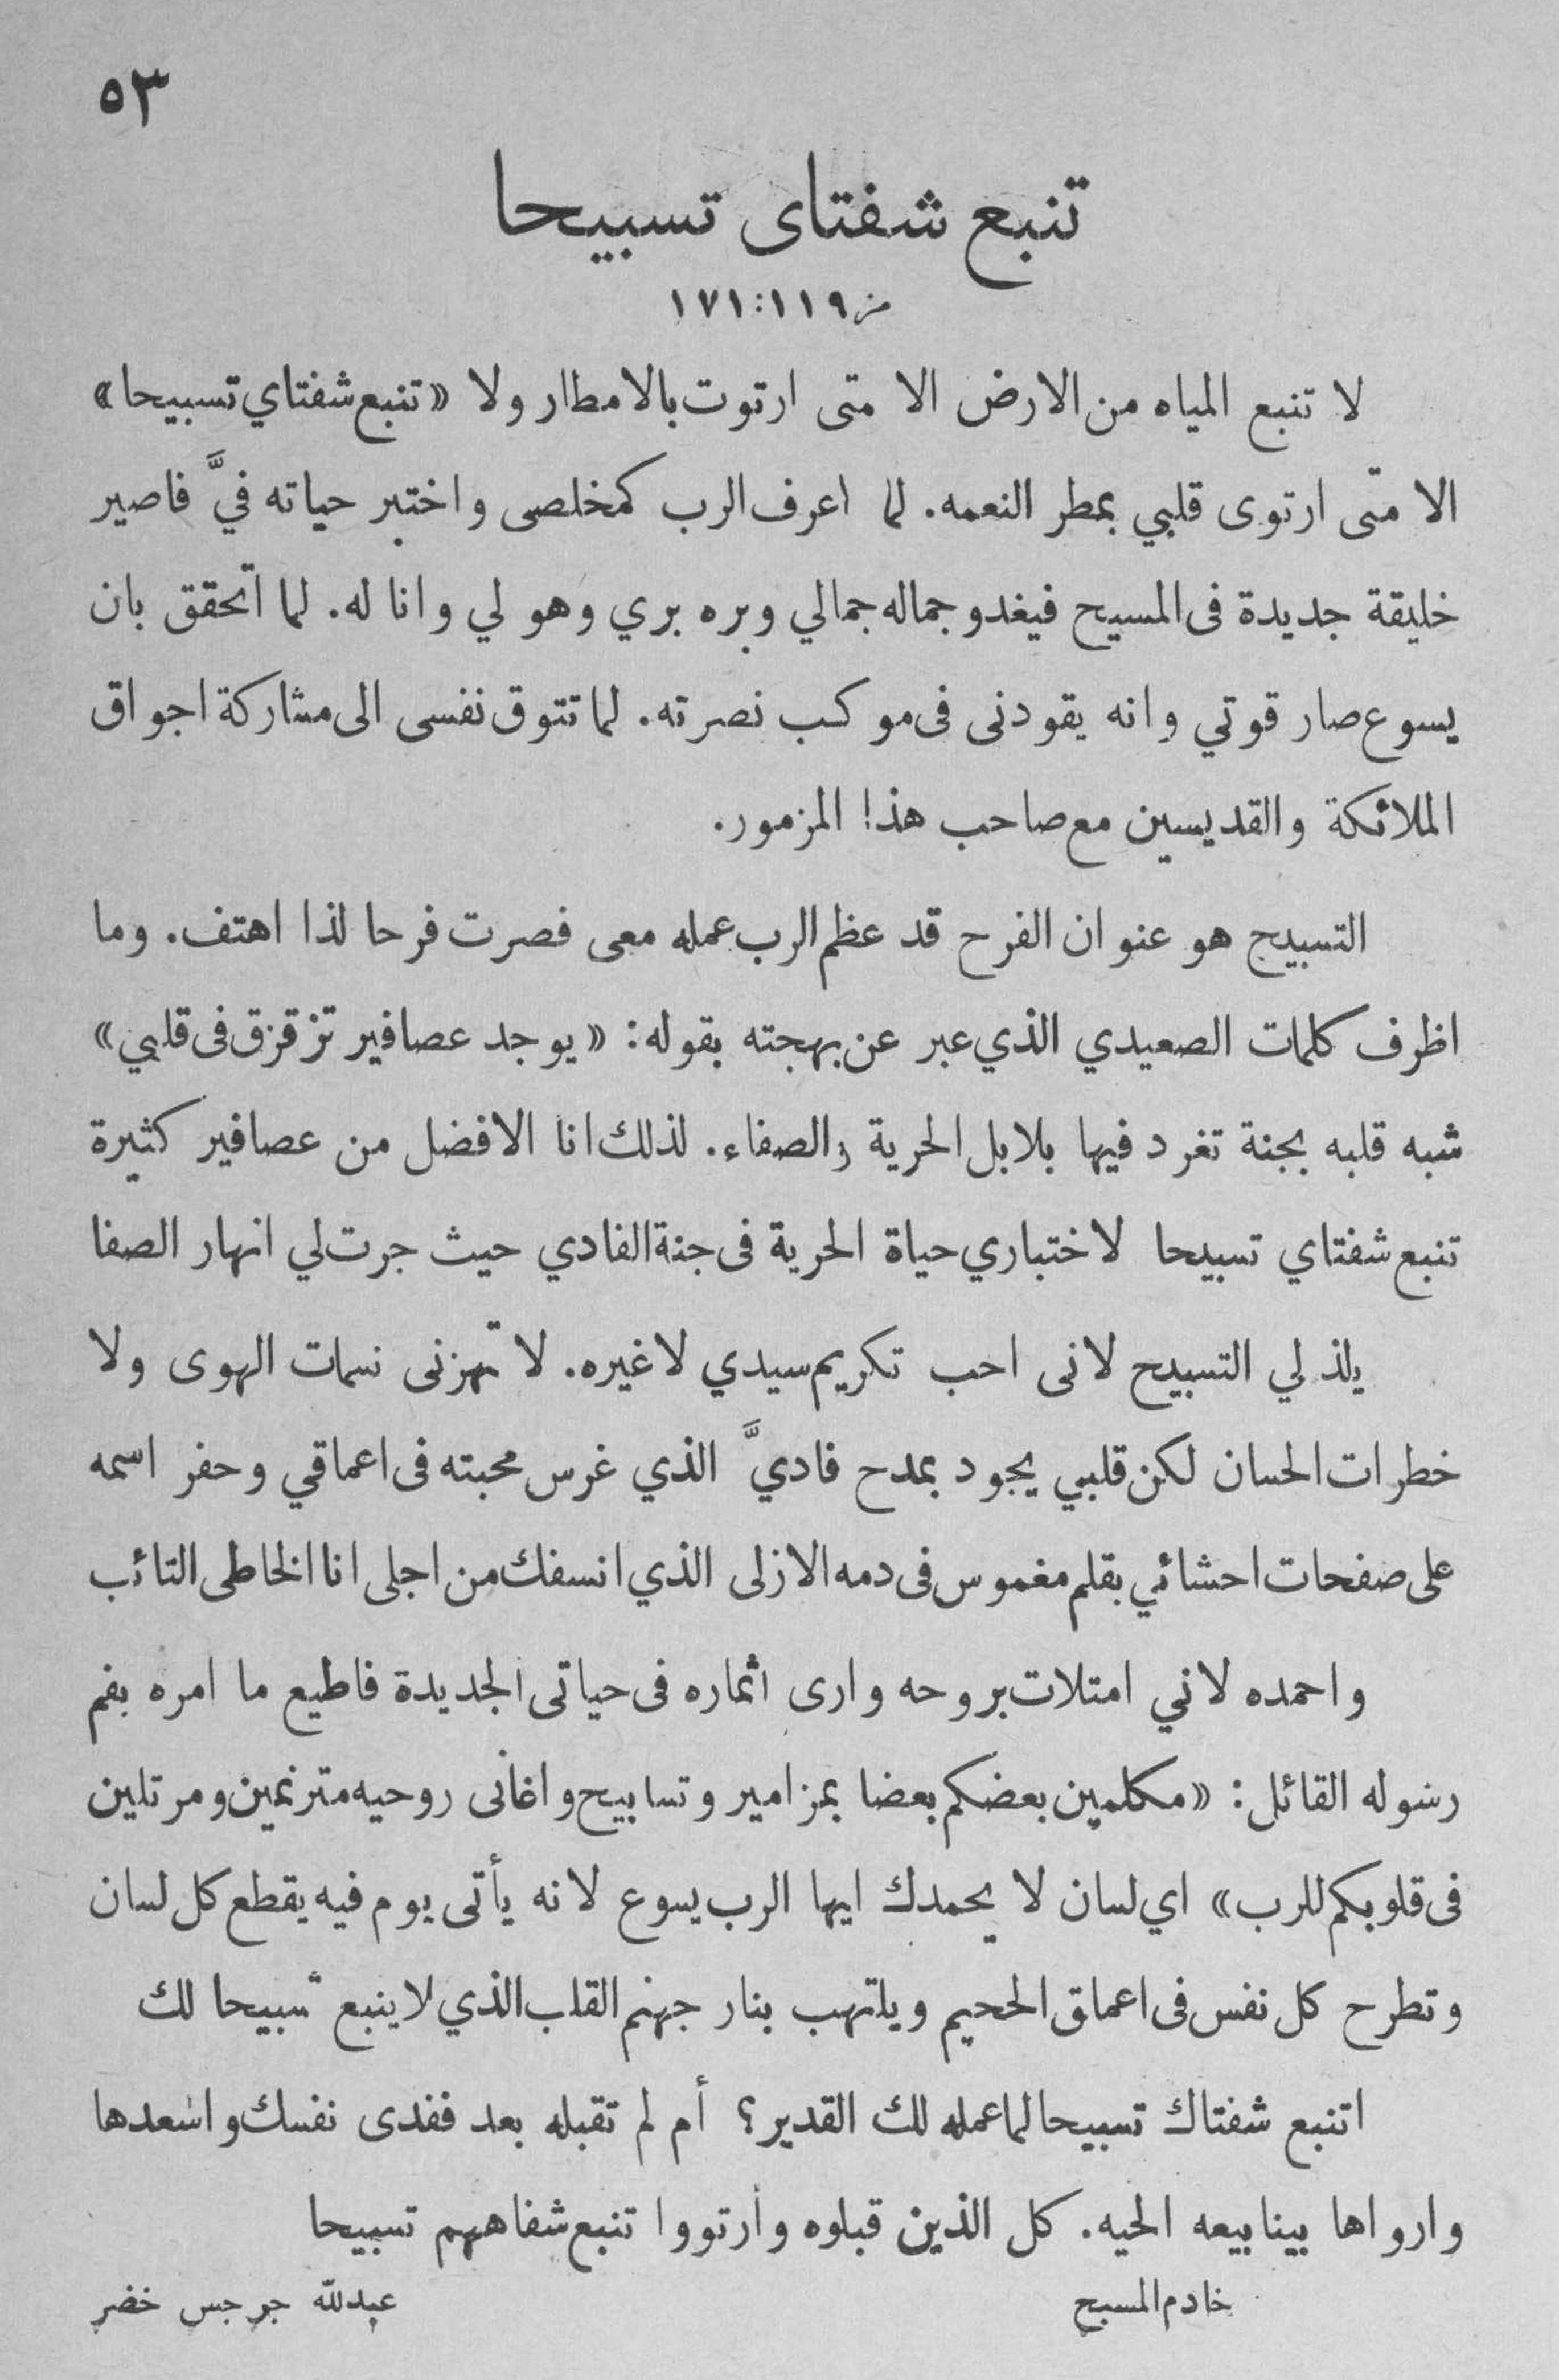 ٥٣
تنبع شفتاى تسبيحا
مز ١١٩:١٧١
لا تنبع المياه من الارض الا متى ارتوت بالامطار ولا «تنبع شفتاي تسبيحا»
الا متى ارتوى قلبي بمطر النعمه. لما اعرف الرب كمخلصى واختبر حياته فيَّ فاصير
خليقة جديدة فى المسيح فيغدو جماله جمالي وبره بري وهو لي وانا له. لما اتحقق بان
يسوع صار قوتي وانه يقودنى فى موكب نصرته. لما تتوق نفسى الى مشاركة اجواق
الملائكة والقديسين مع صاحب هذا المزمور.
التسبيح هو عنوان الفرح قد عظم الرب عمله معى فصرت فرحا لذا اهتف. وما
اظرف كلمات الصعيدي الذي عبر عن بهجته بقوله: «يوجد عصافير تزقزق فى قلبي»
شبه قلبه بجنة تغرد فيها بلابل الحرية والصفاء. لذلك انا الافضل من عصافير كثيرة
تنبع شفتاي تسبيحا لاختباري حياة الحرية فى جنة الفادي حيث جرت لي انهار الصفا
يلذ لي التسبيح لانى احب تكريم سيدي لاغيره. لا تهزنى نسمات الهوى ولا
خطرات الحسان لكن قلبي يجود بمدح فاديَّ الذي غرس محبته فى اعماقي وحفر اسمه
على صفحات احشائي بقلم مغموس فى دمه الازلى الذي انسفك من اجلى انا الخاطى التائب
واحمده لاني امتلات بروحه وارى اثماره فى حياتى الجديدة فاطيع ما امره بفم
رسوله القائل: «مكلمين بعضكم بعضا بمزامير وتسابيح واغانى روحيه مترنمين ومرتلين
فى قلوبكم للرب» اي لسان لا يحمدك ايها الرب يسوع لانه يأتى يوم فيه يقطع كل لسان
وتطرح كل نفس فى اعماق الجحيم ويلتهب بنار جهنم القلب الذي لا ينبع تسبيحا لك
اتنبع شفتاك تسبيحا لما عمله لك القدير؟ أم لم تقبله بعد ففدى نفسك واسعدها
وارواها بينابيعه الحيه. كل الذين قبلوه وارتووا تنبع شفاههم تسبيحا
خادم المسيح
عبدلله جرجس خضر